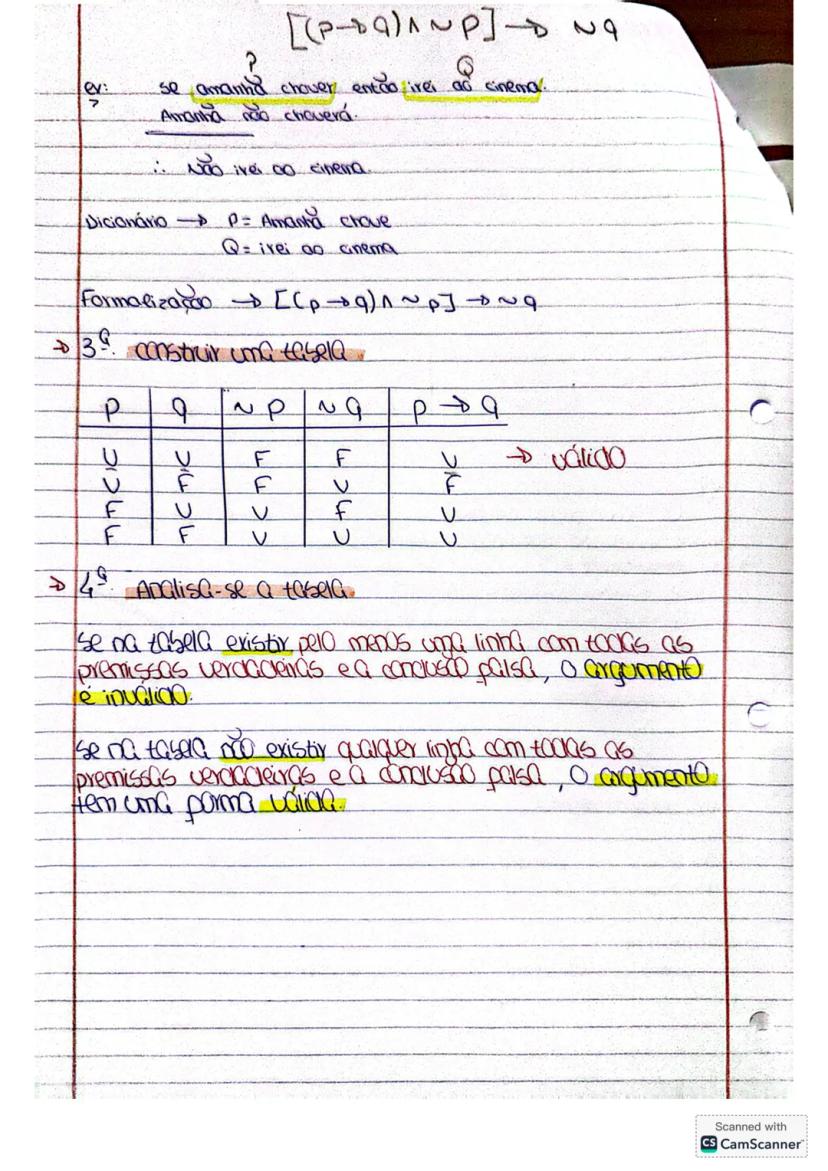 [(p→q)∧~p]→ ~q
P Q
ex: se amanhã chover então irei ao cinema.
Amanhã não choverá.
∴ Não irei ao cinema.
Dicionário → P = Amanhã chove
Q = irei ao cinema
Formalização → [(p→q)∧~p]→~q
→ 3ª. construir uma tabela.
P Q ~P ~Q P → Q
V V F F V → válido
V F F V F
F V V F V
F F V V V
→ 4ª. Analisa-se a tabela.
Se na tabela existir pelo menos uma linha com todas as
premissas verdadeiras e a conclusão falsa, o argumento
é inválido.
Se na tabela não existir qualquer linha com todas as
premissas verdadeiras e a conclusão falsa, o argumento
tem uma forma válida.
Scanned with
CS CamScanner